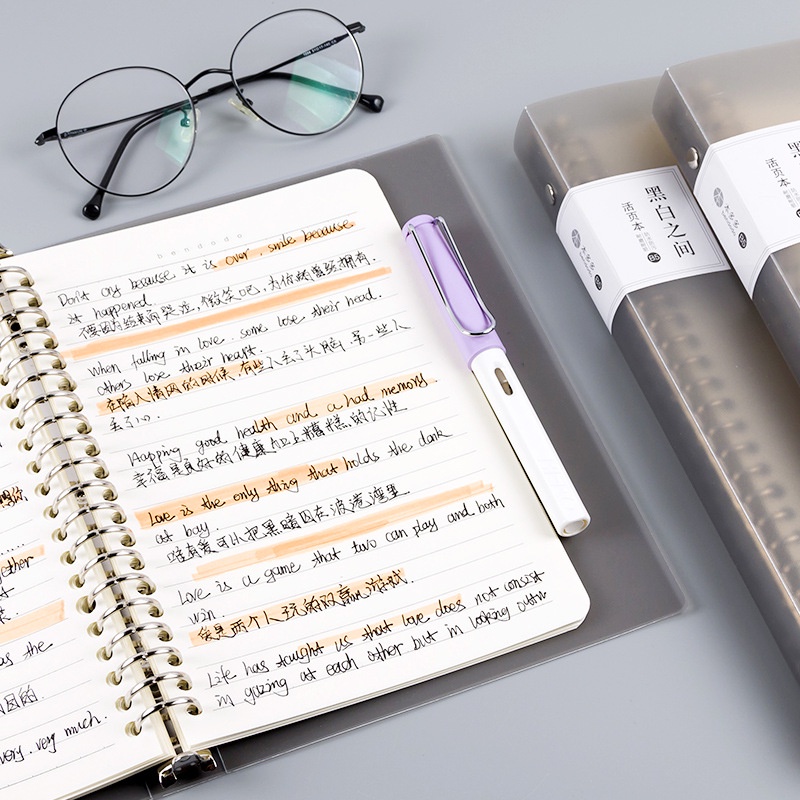 bendodo
Don't cry because it is over, smile because
it happened.
When falling in love, some lose their head.
others lose their heart.
在陷入情网的时候,有些人丢了头脑,另一些人
丢了心.
Happing good health and a had memory.
幸福是良好的健康加上糟糕的记性
Love is the only thing that holds the dark
at bay.
唯有爱可以把黑暗困在波港湾里
Love is a game that two can play and both
win.
是两个人玩的双赢游戏.
Life has taught us that love does not consist
in gazing at each other but in looking
other
as the
very. very much.
黑白之间
活页本
B5
黑
活页本
B5